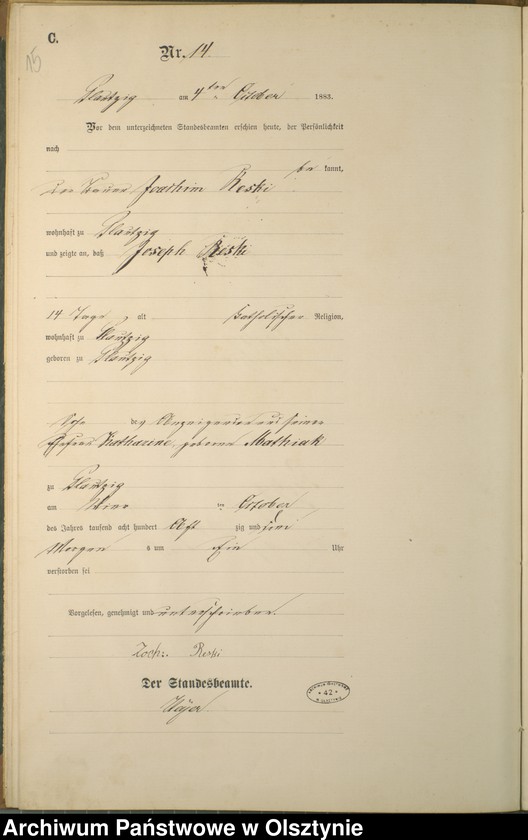 C.
15
Nr. 14
Plautzig am 4ten October 1883.
Vor dem unterzeichneten Standesbeamten erschien heute, der Persönlichkeit
nach
be kannt,
der Bauer Joachim Reski
wohnhaft zu Plautzig
und zeigte an, daß Joseph Reski
14 Tage alt katholischer Religion,
wohnhaft zu Plautzig
geboren zu Plautzig
Sohn des Anzeigenden und seiner
Ehefrau Katharine geborene Mathiak
zu Plautzig
am October
des Jahres tausend acht hundert acht zig und drei
Morgen s um ein Uhr
verstorben sei
Vorgelesen, genehmigt und unterschrieben.
Joch: Reski
Der Standesbeamte.
* 42 *
Archiwum Państwowe w Olsztynie